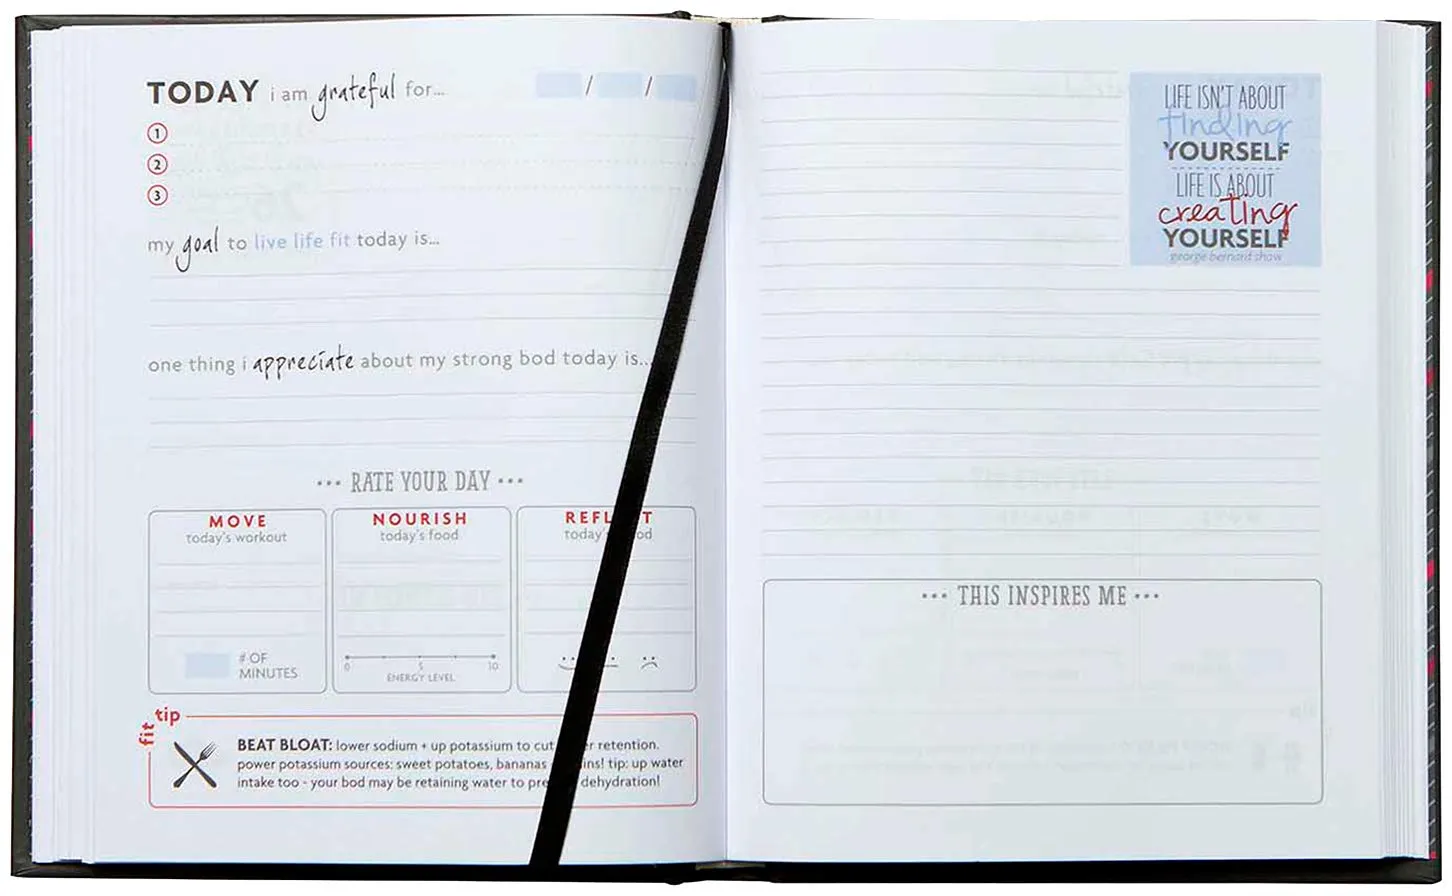 TODAY i am grateful for...
/ /
1
2
3
my goal to live life fit today is...
one thing i appreciate about my strong bod today is...
••• RATE YOUR DAY •••
MOVE
today's workout
# OF
MINUTES
NOURISH
today's food
0 5 10
ENERGY LEVEL
today's
fit tip
BEAT BLOAT: lower sodium + up potassium to cut retention.
power potassium sources: sweet potatoes, bananas tip: up water
intake too - your bod may be retaining water to dehydration!
LIFE ISN'T ABOUT
finding
YOURSELF
LIFE IS ABOUT
creating
YOURSELF
george bernard shaw
••• THIS INSPIRES ME •••